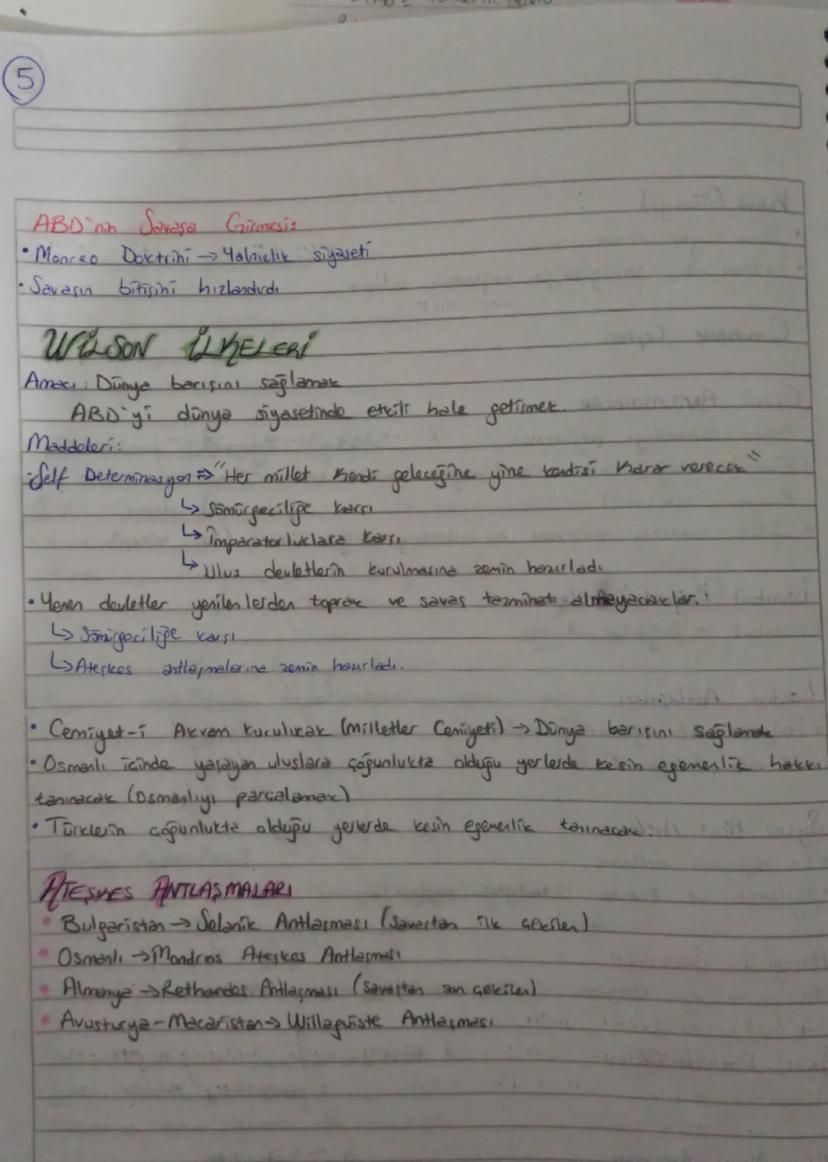 5
ABD'nin Savaşa Girmesi:
• Monreo Doktrini → Yalnızlık siyaseti
• Savaşın bitişini hızlandırdı
WİLSON İLKELERİ
Amacı: Dünya barışını sağlamak
ABD'yi dünya siyasetinde etkili hale getirmek.
Maddeleri:
• Self Determinasyon ⇒ "Her millet kendi geleceğine yine kendisi karar verecek"
↳ Sömürgeciliğe karşı
↳ İmparatorluklara karşı
↳ Ulus devletlerin kurulmasına zemin hazırladı
• Yenen devletler yenilenlerden toprak ve savaş tazminatı almayacaklar.
↳ Sömürgeciliğe karşı
↳ Ateşkes antlaşmalarına zemin hazırladı.
• Cemiyet-i Akvam kurulucak (Milletler Cemiyeti) → Dünya barışını sağlamak
• Osmanlı içinde yaşayan uluslara çoğunlukta olduğu yerlerde kesin egemenlik hakkı
tanınacak (Osmanlıyı parçalamak)
• Türklerin çoğunlukta olduğu yerlerde kesin egemenlik tanınacak.
ATEŞKES ANTLAŞMALARI
• Bulgaristan → Selanik Antlaşması (savaştan ilk çekilen)
• Osmanlı → Mondros Ateşkes Antlaşması
• Almanya → Rethandes Antlaşması (savaştan son çekilen)
• Avusturya-Macaristan → Willaguiste Antlaşması